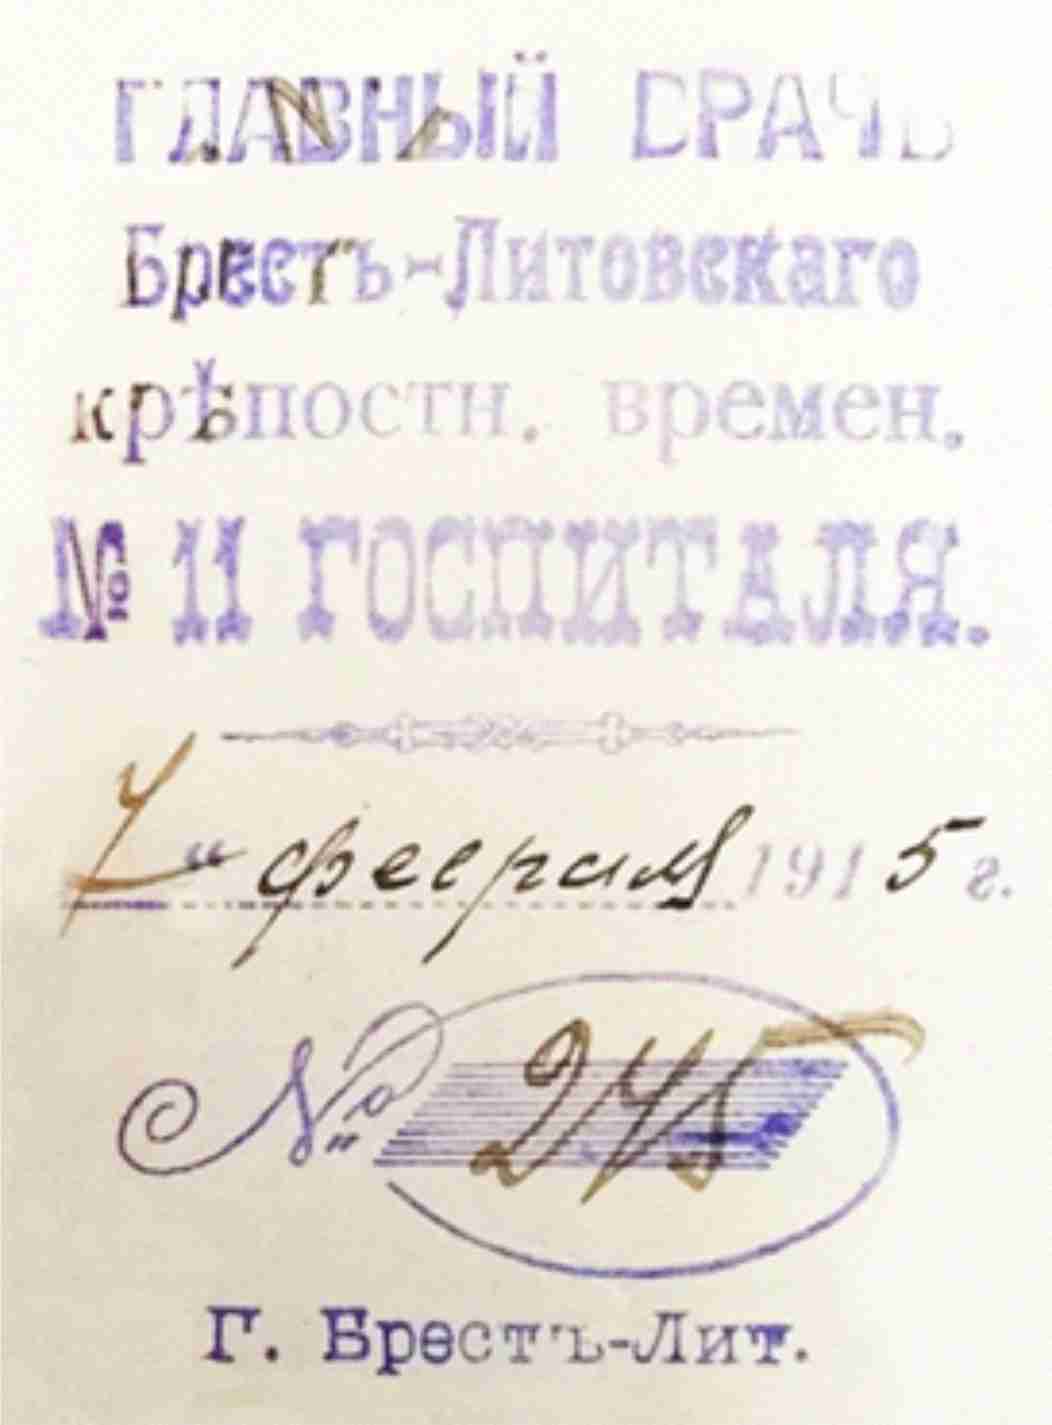 ГЛАВНЫЙ ВРАЧЪ
Брестъ-Литовскаго
крѣпостн. времен.
№ 11 ГОСПИТАЛЯ.
февраля 1915 г.
№ 245
Г. Брестъ-Лит.